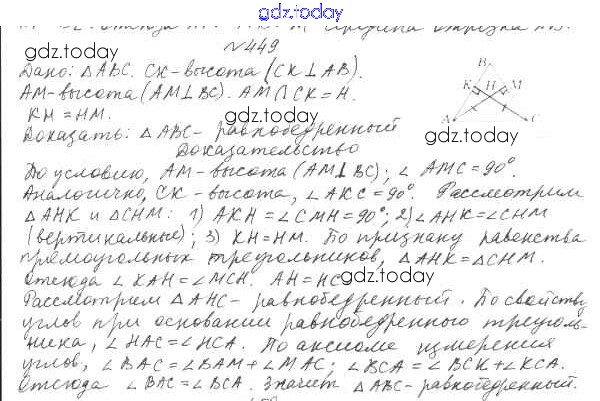 gdz.today
№449
gdz.today
Дано: △ABC. CK-высота (CK⊥AB).
AM-высота (AM⊥BC). AM∩CK=H.
KH=HM.
Доказать: △ABC- равнобедренный
B
K H M
A C
gdz.today
gdz.today
Доказательство
По условию, AM-высота (AM⊥BC); ∠AMC=90°.
Аналогично, CK-высота, ∠AKC=90°. Рассмотрим
△AHK и △CHM: 1) AKH=∠CMH=90°; 2) ∠AHK=∠CHM
(вертикальные); 3) KH=HM. По признаку равенства
прямоугольных треугольников, △AHK=△CHM.
Отсюда ∠KAH=∠MCH. AH=HC
gdz.today
Рассмотрим △AHC- равнобедренный. По свойству
углов при основании равнобедренного треуголь-
ника, ∠HAC=∠HCA. По аксиоме измерения
углов, ∠BAC=∠BAM+∠MAC; ∠BCA=∠BCK+∠KCA.
Отсюда ∠BAC=∠BCA. Значит △ABC-равнобедренный.
gdz.today